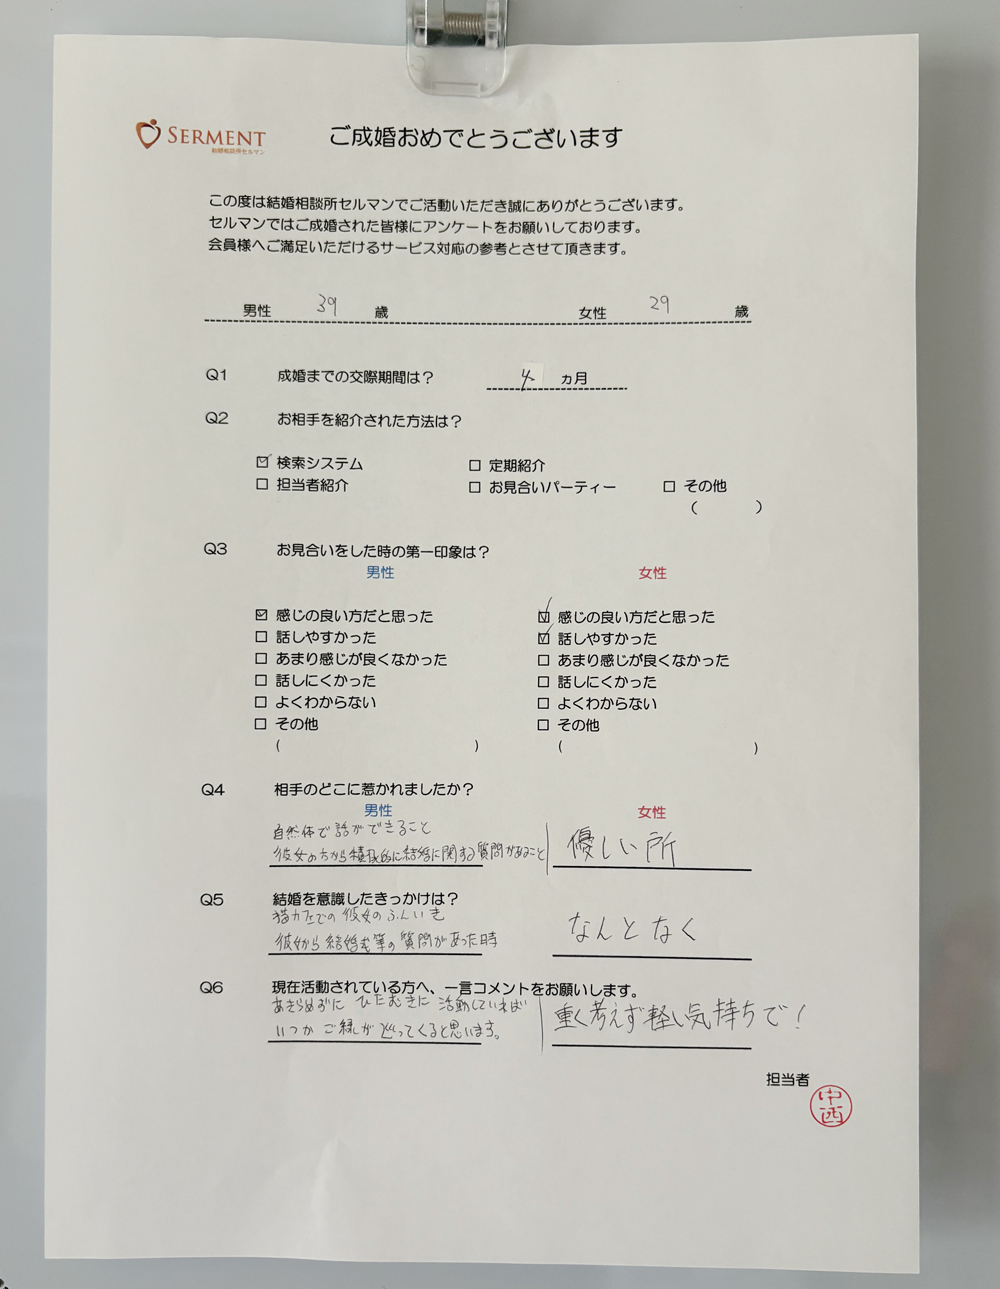 SERMENT
結婚相談所セルマン
ご成婚おめでとうございます
この度は結婚相談所セルマンでご活動いただき誠にありがとうございます。
セルマンではご成婚された皆様にアンケートをお願いしております。
会員様へご満足いただけるサービス対応の参考とさせて頂きます。
男性 39 歳 女性 29 歳
Q1 成婚までの交際期間は？ 4 ヵ月
Q2 お相手を紹介された方法は？
☑ 検索システム □ 定期紹介
□ 担当者紹介 □ お見合いパーティー □ その他
( )
Q3 お見合いをした時の第一印象は？
男性 女性
☑ 感じの良い方だと思った ☑ 感じの良い方だと思った
□ 話しやすかった ☑ 話しやすかった
□ あまり感じが良くなかった □ あまり感じが良くなかった
□ 話しにくかった □ 話しにくかった
□ よくわからない □ よくわからない
□ その他 □ その他
( ) ( )
Q4 相手のどこに惹かれましたか？
男性 女性
自然体で話ができること
彼女の方から積極的に結婚に関する質問があること 優しい所
Q5 結婚を意識したきっかけは？
猫カフェでの彼女のふんいき
彼女から結婚式等の質問があった時 なんとなく
Q6 現在活動されている方へ、一言コメントをお願いします。
あきらめずに ひたむきに 活動していれば
いつか ご縁が やってくると思います。 重く考えず軽い気持ちで！
担当者
中西